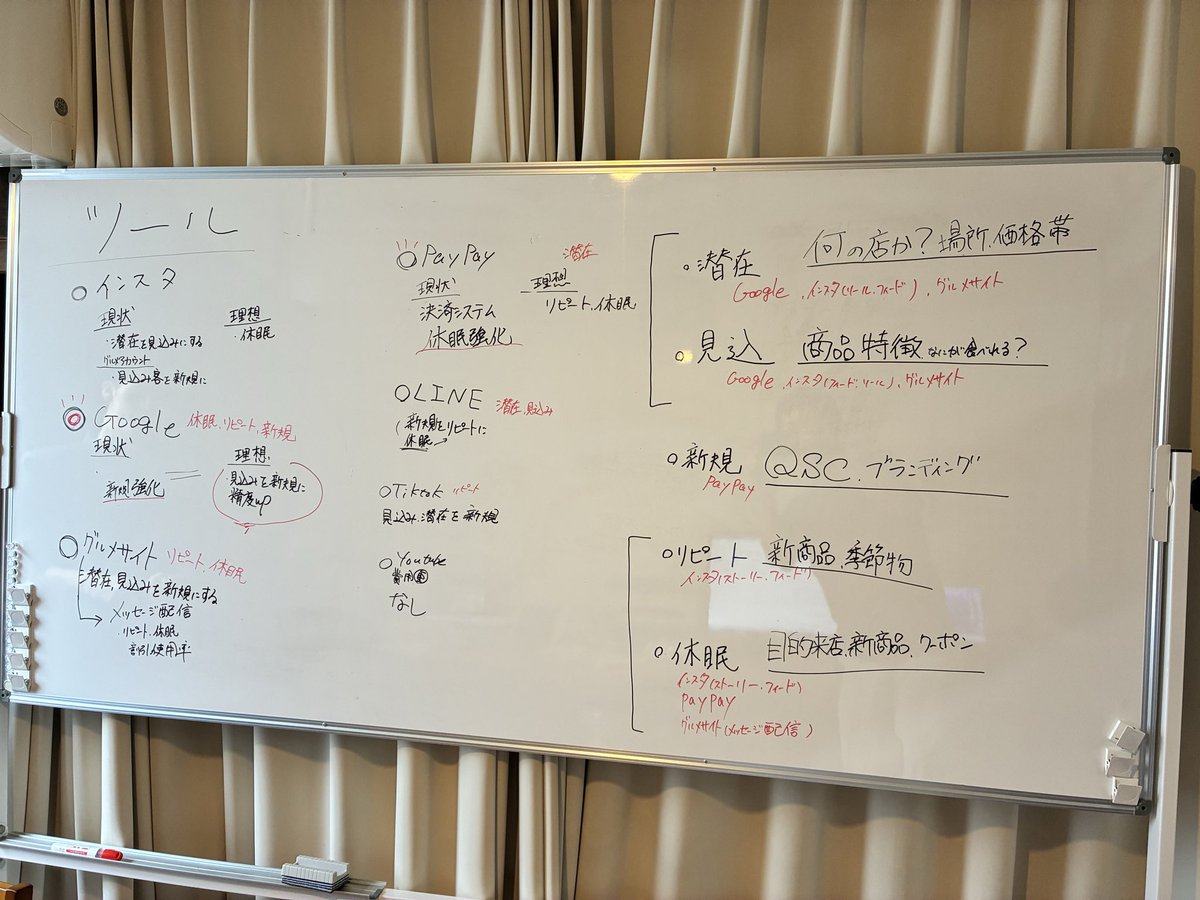 ツール
○インスタ
現状
・潜在を見込みにする
グルメアカウント
・見込み客を新規に
理想
・休眠
◎Google 休眠、リピート、新規
現状
新規強化
理想
見込みを新規に
精度up
○グルメサイト リピート、休眠
潜在、見込みを新規にする
→メッセージ配信
・リピート・休眠
割引使用率
○PayPay 潜在
現状
決済システム
休眠強化
理想
リピート、休眠
○LINE 潜在、見込み
(新規をリピートに
休眠→
○Tiktok リピート
見込み、潜在を新規
○Youtube
費用
なし
○潜在 何の店か?場所、価格帯
Google、インスタ(リール、フィード)、グルメサイト
○見込 商品特徴 なにが食べれる?
Google、インスタ(フィード、リール)、グルメサイト
○新規 QSC、ブランディング
PayPay
○リピート 新商品、季節物
インスタ(ストーリー、フィード)
○休眠 目的来店、新商品、クーポン
インスタ(ストーリー、フィード)
PayPay
グルメサイト(メッセージ配信)